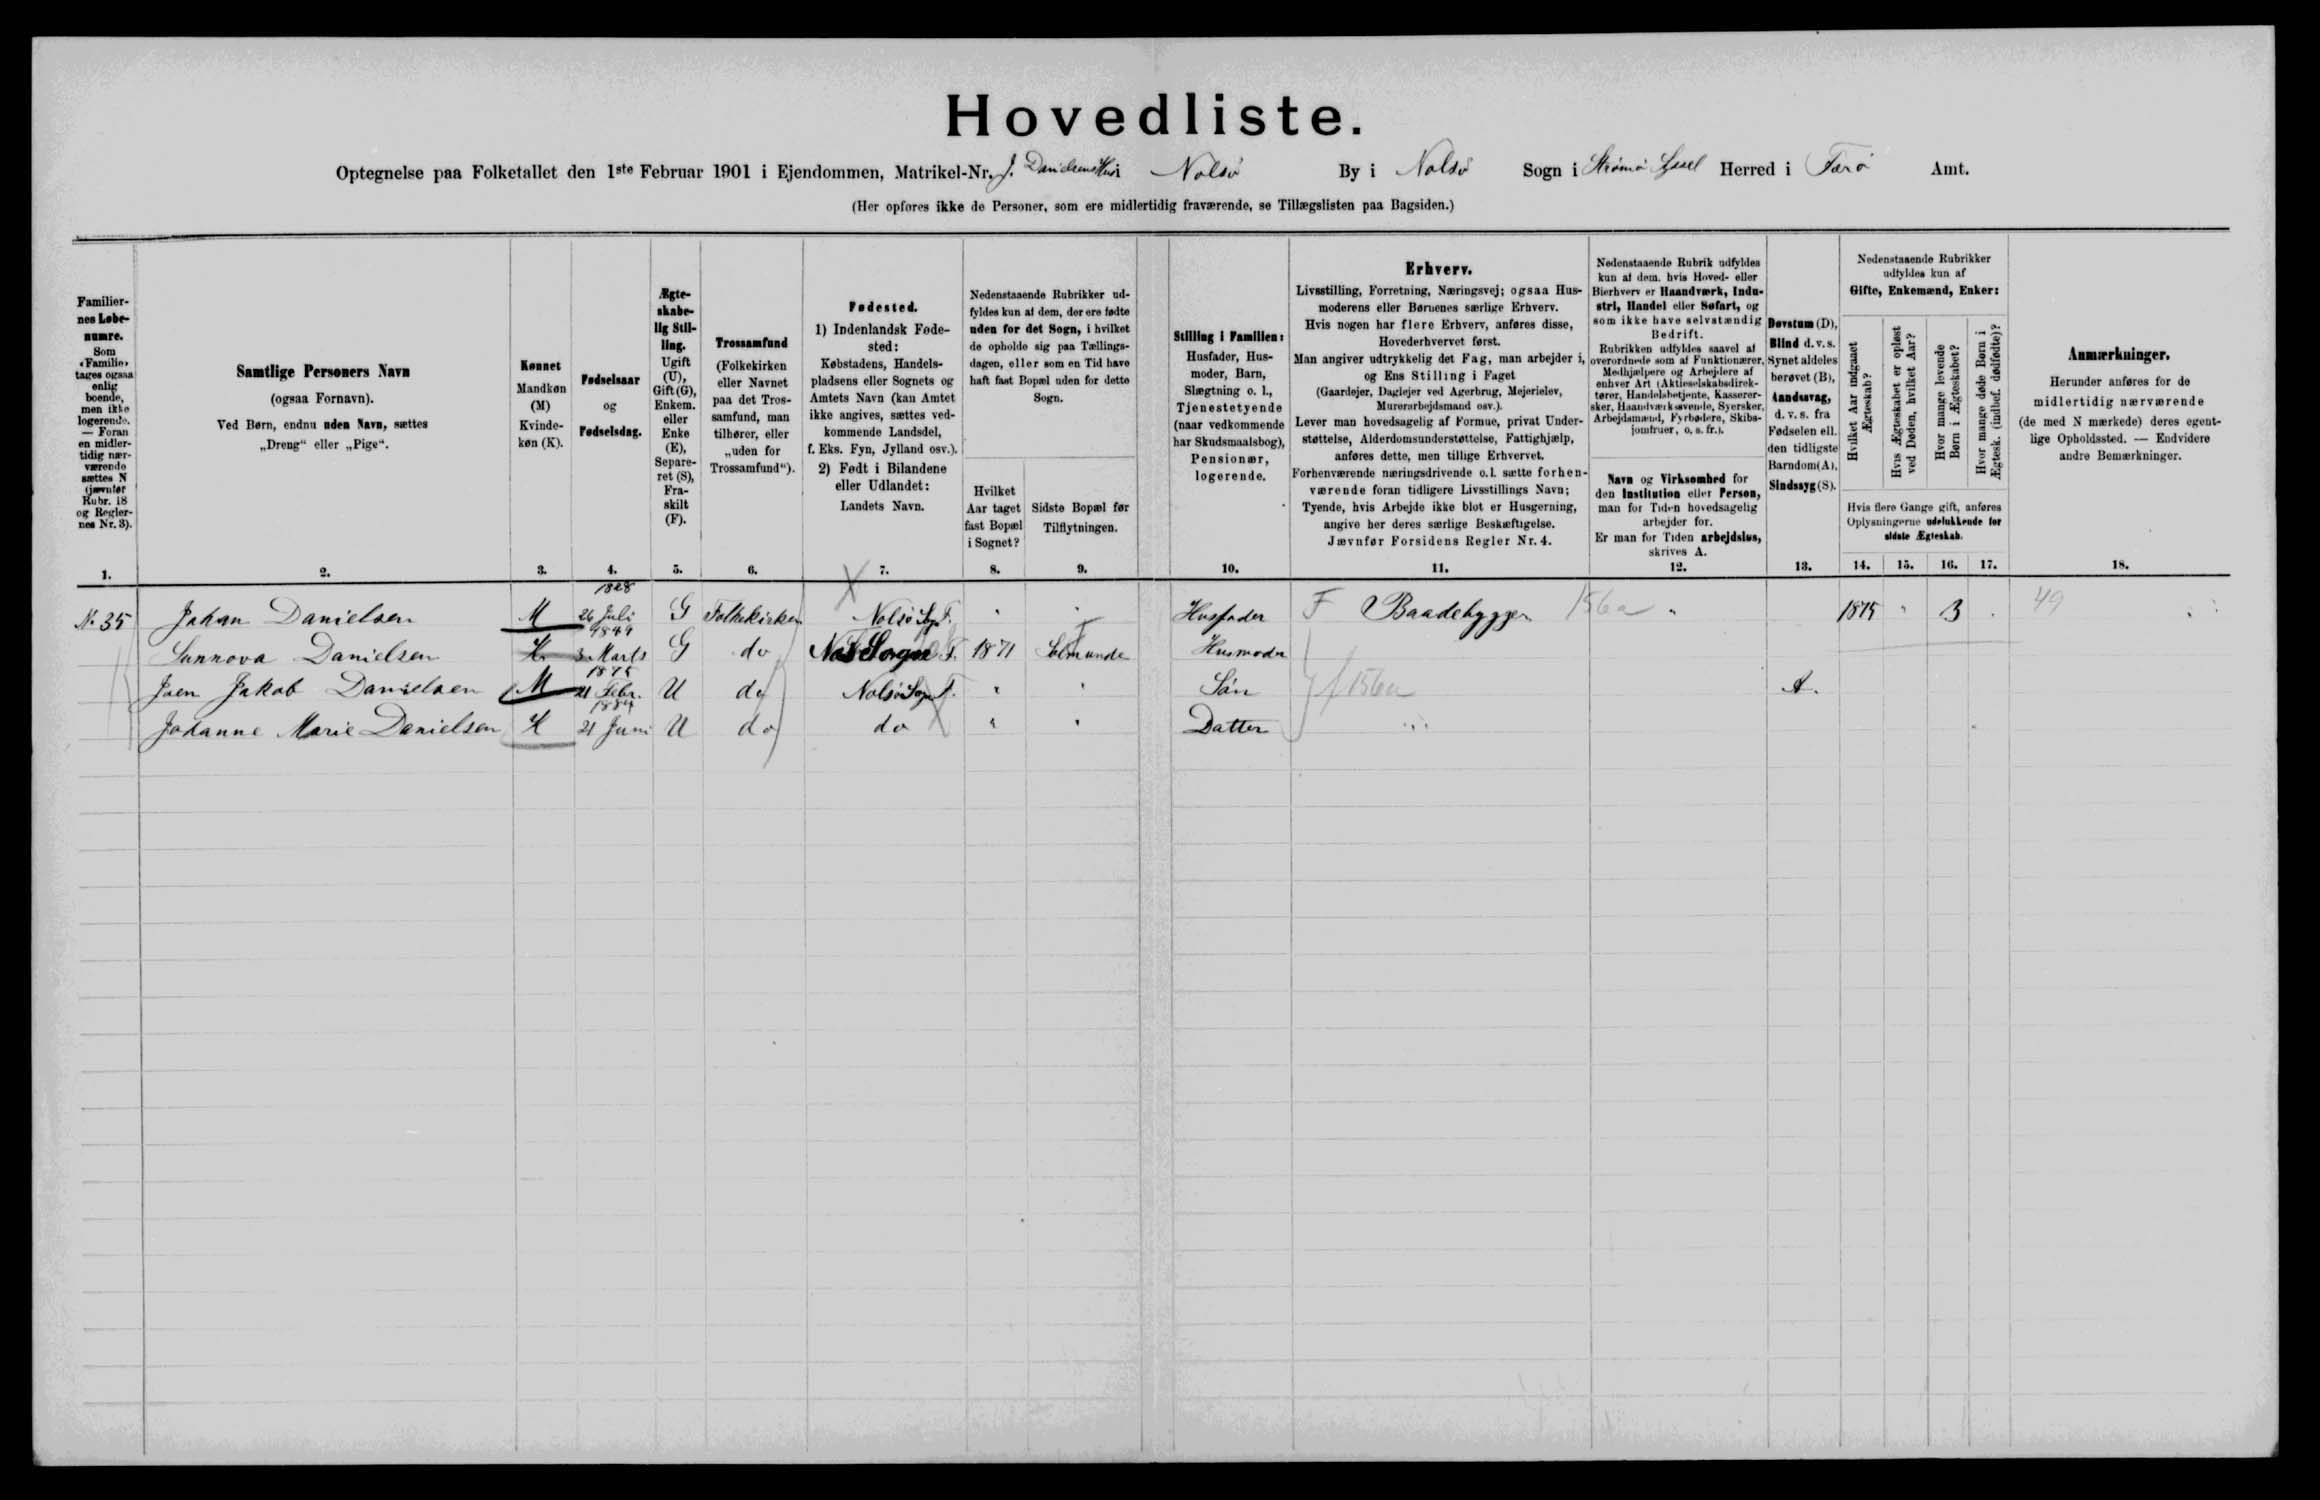 Hovedliste.
Optegnelse paa Folketallet den 1ste Februar 1901 i Ejendommen, Matrikel-Nr. J. Danielsens Hus i Nolsø By i Nolsø Sogn i Strømø Syssel Herred i Færø Amt.
(Her opføres ikke de Personer, som ere midlertidig fraværende, se Tillægslisten paa Bagsiden.)
Familiernes Løbenumre.
Som «Familie» tages ogsaa enlig boende, men ikke logerende. — Foran en midlertidig nærværende sættes N (jævnfør Rubr. 18 og Reglernes Nr. 3).
1.
Samtlige Personers Navn
(ogsaa Fornavn).
Ved Børn, endnu uden Navn, sættes
„Dreng“ eller „Pige“.
2.
Kønnet
Mandkøn
(M)
Kvinde-
køn (K).
3.
Fødselsaar
og
Fødselsdag.
4.
Ægte-
skabe-
lig Stil-
ling.
Ugift
(U),
Gift (G),
Enkem.
eller
Enke
(E),
Separe-
ret (S),
Fra-
skilt
(F).
5.
Trossamfund
(Folkekirken
eller Navnet
paa det Tros-
samfund, man
tilhører, eller
„uden for
Trossamfund“).
6.
Fødested.
1) Indenlandsk Føde-
sted:
Købstadens, Handels-
pladsens eller Sognets og
Amtets Navn (kan Amtet
ikke angives, sættes ved-
kommende Landsdel,
f. Eks. Fyn, Jylland osv.).
2) Født i Bilandene
eller Udlandet:
Landets Navn.
7.
Nedenstaaende Rubrikker ud-
fyldes kun af dem, der ere fødte
uden for det Sogn, i hvilket
de opholde sig paa Tællings-
dagen, eller som en Tid have
haft fast Bopæl uden for dette
Sogn.
Hvilket
Aar taget
fast Bopæl
i Sognet?
8.
Sidste Bopæl før
Tilflytningen.
9.
Stilling i Familien:
Husfader, Hus-
moder, Barn,
Slægtning o. l.,
Tjenestetyende
(naar vedkommende
har Skudsmaalsbog),
Pensionær,
logerende.
10.
Erhverv.
Livsstilling, Forretning, Næringsvej; ogsaa Hus-
moderens eller Børnenes særlige Erhverv.
Hvis nogen har flere Erhverv, anføres disse,
Hovederhvervet først.
Man angiver udtrykkelig det Fag, man arbejder i,
og Ens Stilling i Faget
(Gaardejer, Daglejer ved Agerbrug, Mejerielev,
Murerarbejdsmand osv.).
Lever man hovedsagelig af Formue, privat Under-
støttelse, Alderdomsunderstøttelse, Fattighjælp,
anføres dette, men tillige Erhvervet.
Forhenværende næringsdrivende o.l. sætte forhen-
værende foran tidligere Livsstillings Navn;
Tyende, hvis Arbejde ikke blot er Husgerning,
angive her deres særlige Beskæftigelse.
Jævnfør Forsidens Regler Nr. 4.
11.
Nedenstaaende Rubrik udfyldes
kun af dem, hvis Hoved- eller
Bierhverv er Haandværk, Indu-
stri, Handel eller Søfart, og
som ikke have selvstændig
Bedrift.
Rubrikken udfyldes saavel af
overordnede som af Funktionærer,
Medhjælpere og Arbejdere af
enhver Art (Aktieselskabsdirek-
tører, Handelsbetjente, Kasserer-
sker, Haandværkssvende, Syersker,
Arbejdsmænd, Fyrbødere, Skibs-
jomfruer, o. s. fr.).
Navn og Virksomhed for
den Institution eller Person,
man for Tiden hovedsagelig
arbejder for.
Er man for Tiden arbejdsløs,
skrives A.
12.
Døvstum (D),
Blind d. v. s.
Synet aldeles
berøvet (B),
Aandssvag,
d. v. s. fra
Fødselen ell.
den tidligste
Barndom (A),
Sindssyg (S).
13.
Nedenstaaende Rubrikker
udfyldes kun af
Gifte, Enkemænd, Enker:
Hvilket Aar indgaaet Ægteskab?
Hvis Ægteskabet er opløst ved Døden, hvilket Aar?
Hvor mange levende Børn i Ægteskabet?
Hvor mange døde Børn i Ægtesk. (indbef. dødfødte)?
Hvis flere Gange gift, anføres
Oplysningerne udelukkende for
sidste Ægteskab.
14. 15. 16. 17.
Anmærkninger.
Herunder anføres for de
midlertidig nærværende
(de med N mærkede) deres egent-
lige Opholdssted. — Endvidere
andre Bemærkninger.
18.
N. 35 Johan Danielsen M 1828 26 Juli G Folkekirken Nolsø Sogn F. " " Husfader F Baadebygger 156a " 1875 " 3 . 49
Sunnova Danielsen K 1849 3 Marts G do Sogn F. 1871 Husmoder
Joen Jakob Danielsen M 1875 21 Febr. U do Nolsø Sogn F. " " Søn 156a A.
Johanne Marie Danielsen K 1884 21 Juni U do do " " Datter